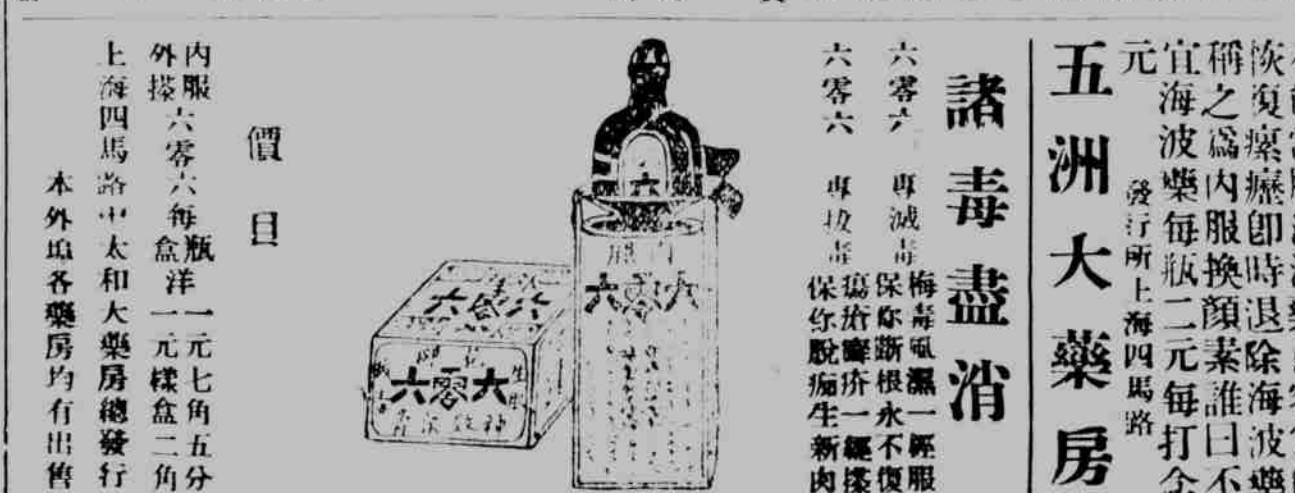 恢復瘰癧卽時退除海波藥
稱之爲內服換顏素誰曰不
宜海波藥每瓶二元每打念
元
發行所上海四馬路
五洲大藥房
諸毒盡消
六零六 專滅毒
梅毒風濕一經服
保你斷根永不復
六零六 專拔毒
瘍瘡癬疥一經搽
保你脫痂生新肉
內服
六零六
六零六
六零六
價目
內服六零六每瓶洋一元七角五分
外搽六零六每盒洋一元樣盒二角
上海四馬路中太和大藥房總發行
本外埠各藥房均有出售